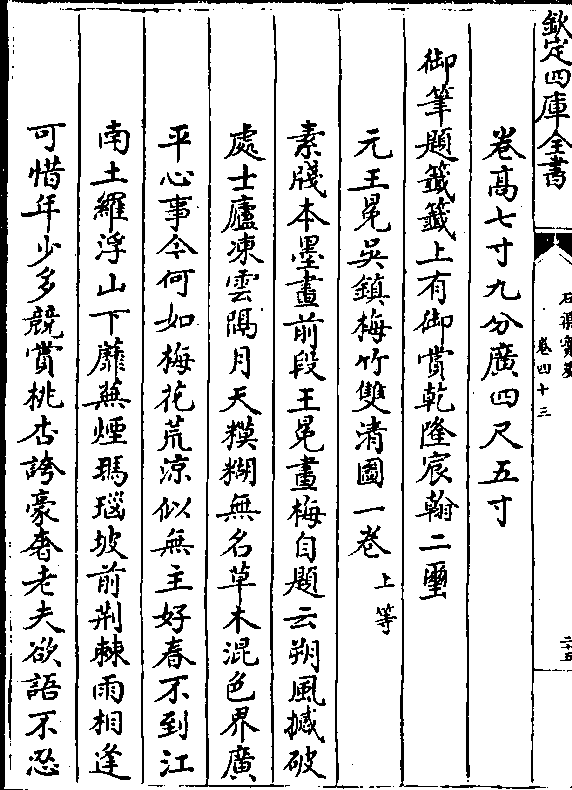 欽定四庫全書
石渠寶笈
卷四十三
二十五
卷髙七寸九分廣四尺五寸
御筆題籤籤上有御賞乾隆宸翰二璽
元王冕吳鎮梅竹雙清圖一卷上等
素牋本墨畫前段王冕畫梅自題云朔風撼破
處士廬凍雲隔月天糢糊無名草木混色界廣
平心事今何如梅花荒凉似無主好春不到江
南土羅浮山下蘼蕪煙瑪瑙坡前荆棘雨相逢
可惜年少多競賞桃杏誇豪奢老夫欲語不忍